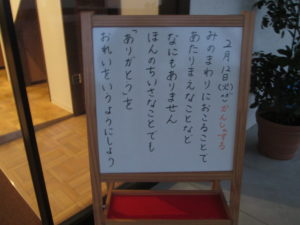 2月12日(火) かんしゃする
みのまわりにおこることで
あたりまえなことなど
なにもありません
ほんのちいさなことでも
「ありがとう」を
おれいをいうようにしよう